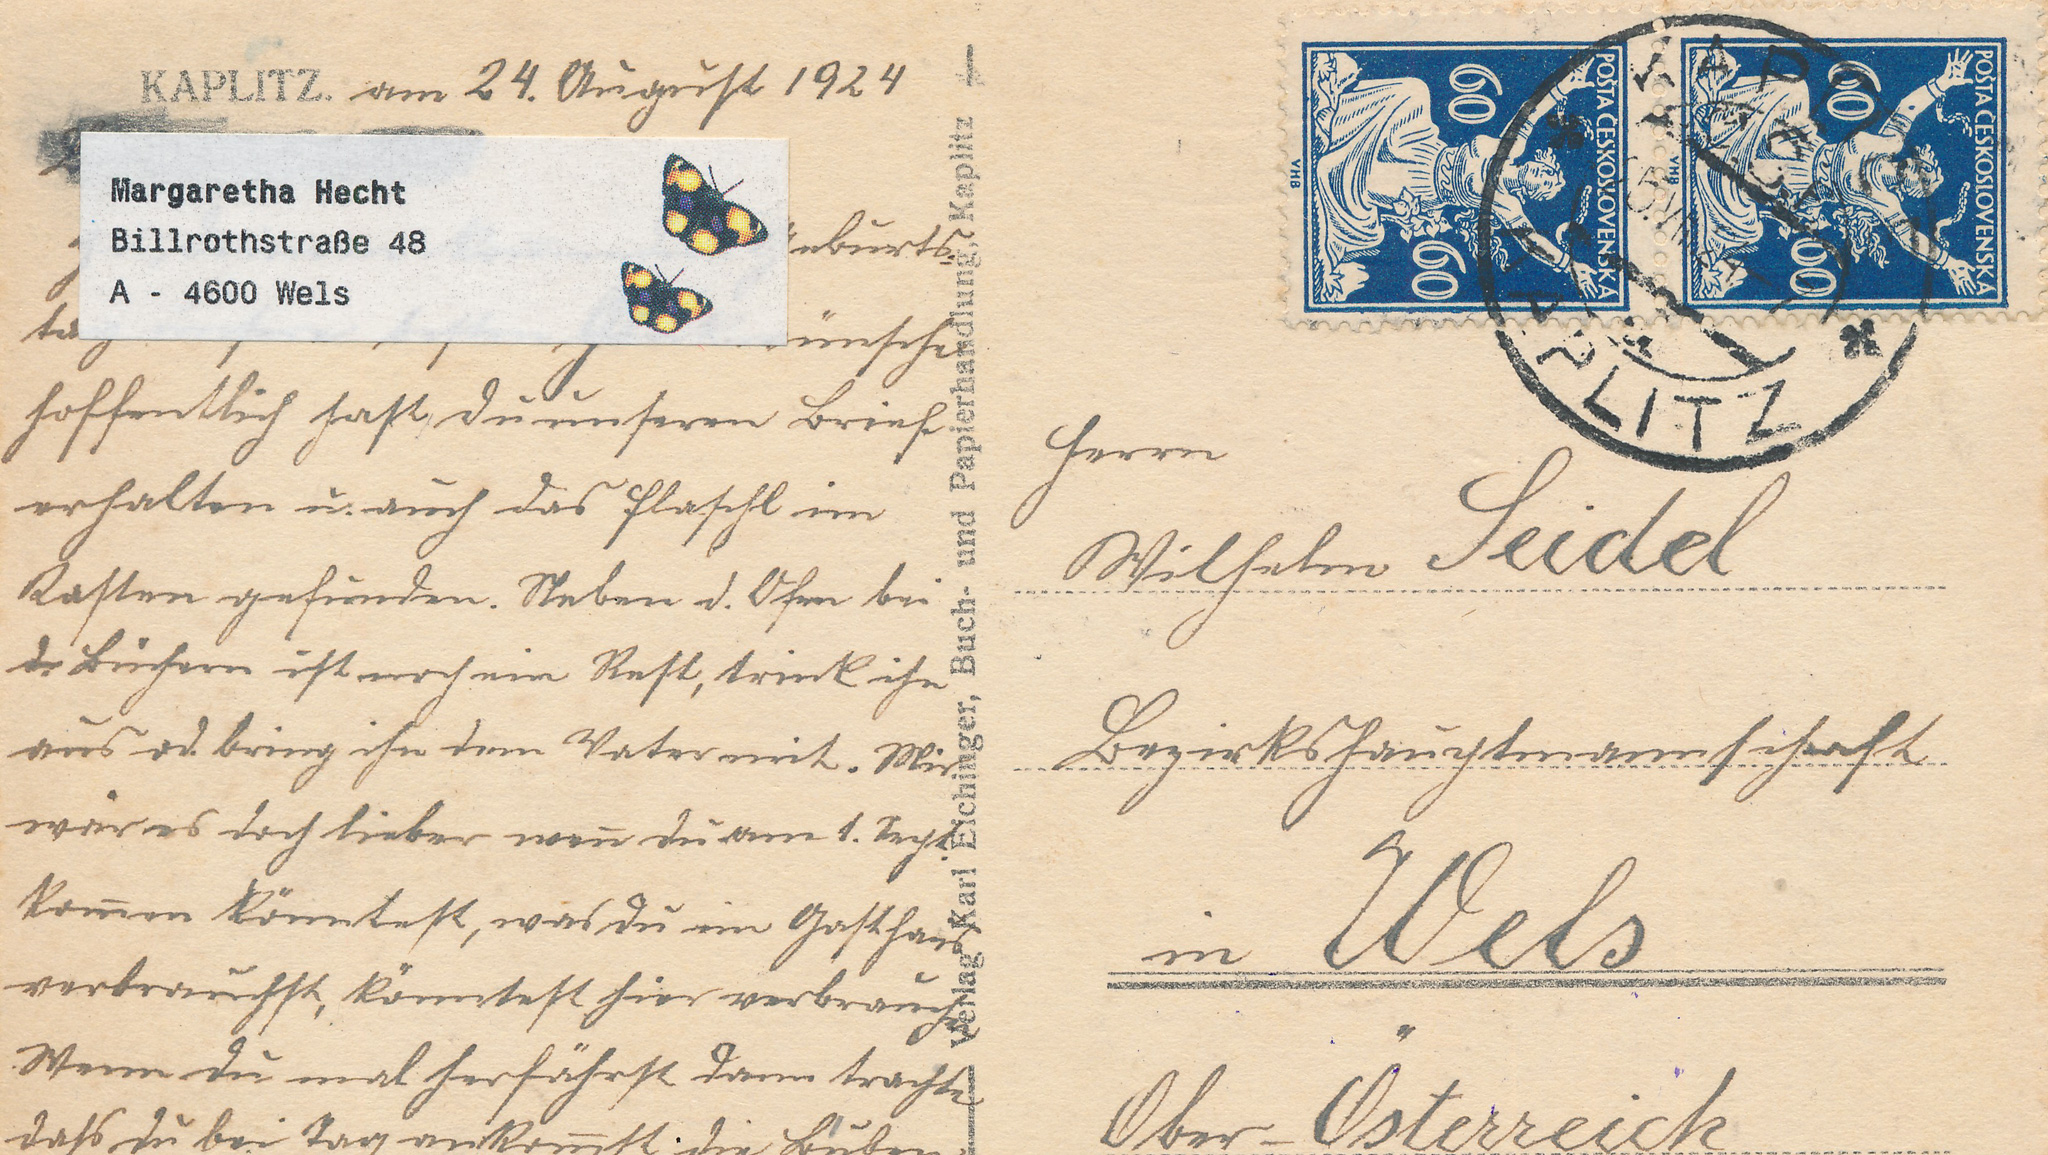 KAPLITZ. am 24. August 1924
Margaretha Hecht
Billrothstraße 48
A - 4600 Wels
Geburts-
tag
wünsche
hoffentlich hast du unseren Brief
erhalten u. auch das Flaschl im
Kasten gefunden. Neben d. Ofen bei
dr Büchern ist noch ein Rest, trink ihn
aus od. bring ihn dem Vater mit. Mir
wär es doch lieber wen̄ du am 1. Sept
kom̄en könntest, was du im Gasthaus
verbrauchst, könntest hier verbrauchen
Wenn du mal herfährst dann trachte
dass du bei Tag ankom̄st. die Buben
Verlag Karl Eichinger, Buch- und Papierhandlung, Kaplitz
POŠTA ČESKOSLOVENSKÁ
60 60
VHB
POŠTA ČESKOSLOVENSKÁ
60 60
VHB
KAPLICE
KAPLITZ
Herrn
Wilhelm Seidel
Bezirkshauptmannschaft
in Wels
Ober-Österreich